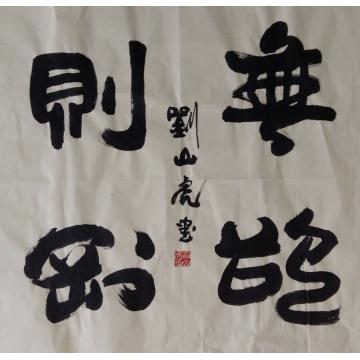 無欲
則剛
劉山虎書